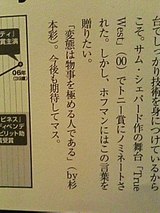 てしっかり技術を身につけているから
こそ。サム・シェパード作の舞台「True
West」('00)でトニー賞にノミネートさ
れた。しかし、ホフマンにはこの言葉を
贈りたい。
「変態は物事を極める人である」(by杉
本彩)。今後も期待してマス。
ティ』
賞主演
06年
ビネス』
ディペンデ
ピリット助
受賞